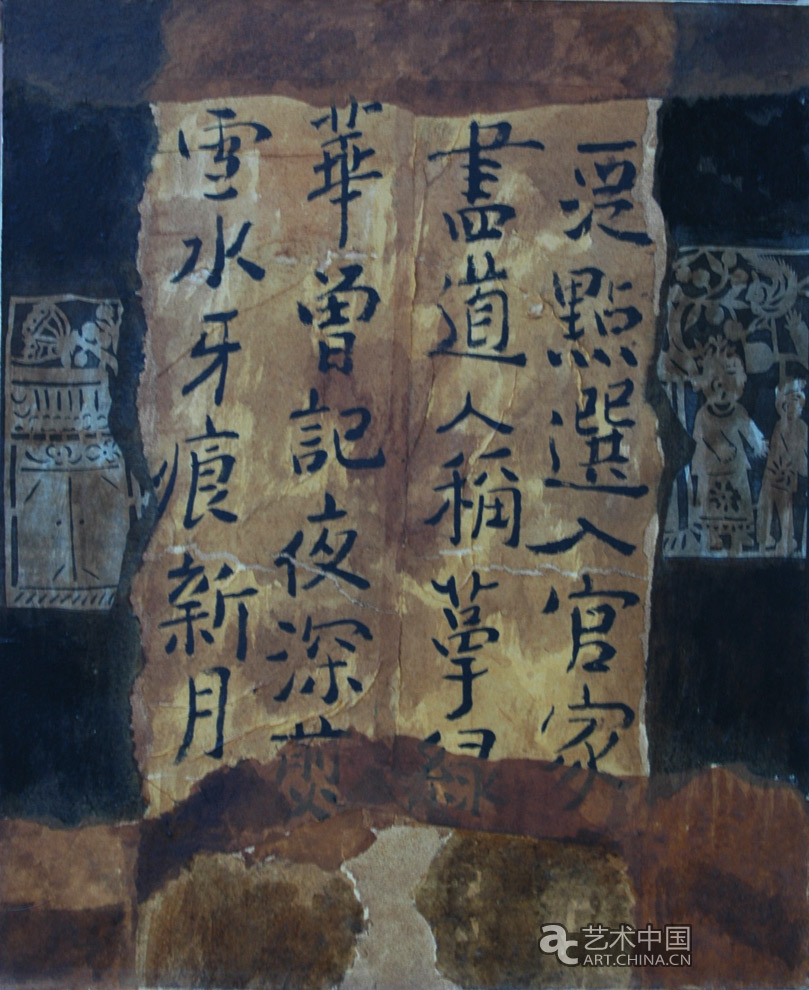 一從點選入官家
盡道人稱萼緑
華曾記夜深煎
雪水牙痕新月
艺术中国
ART.CHINA.CN